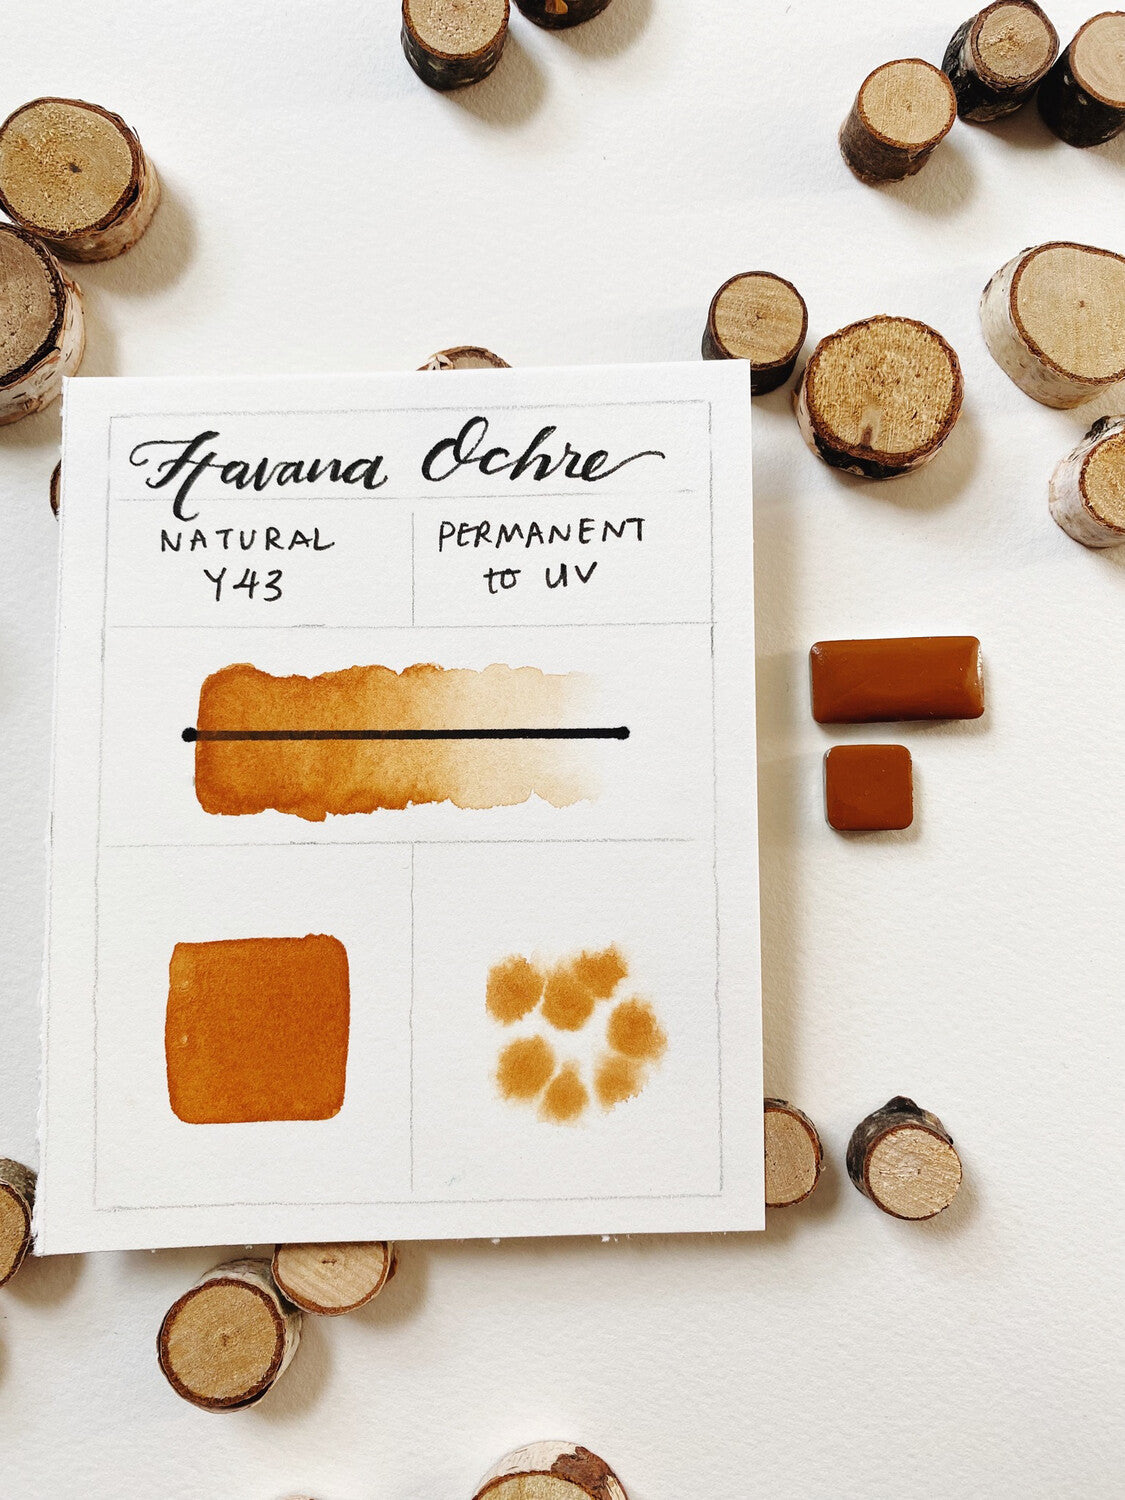 Havana Ochre
NATURAL
Y43
PERMANENT
to UV